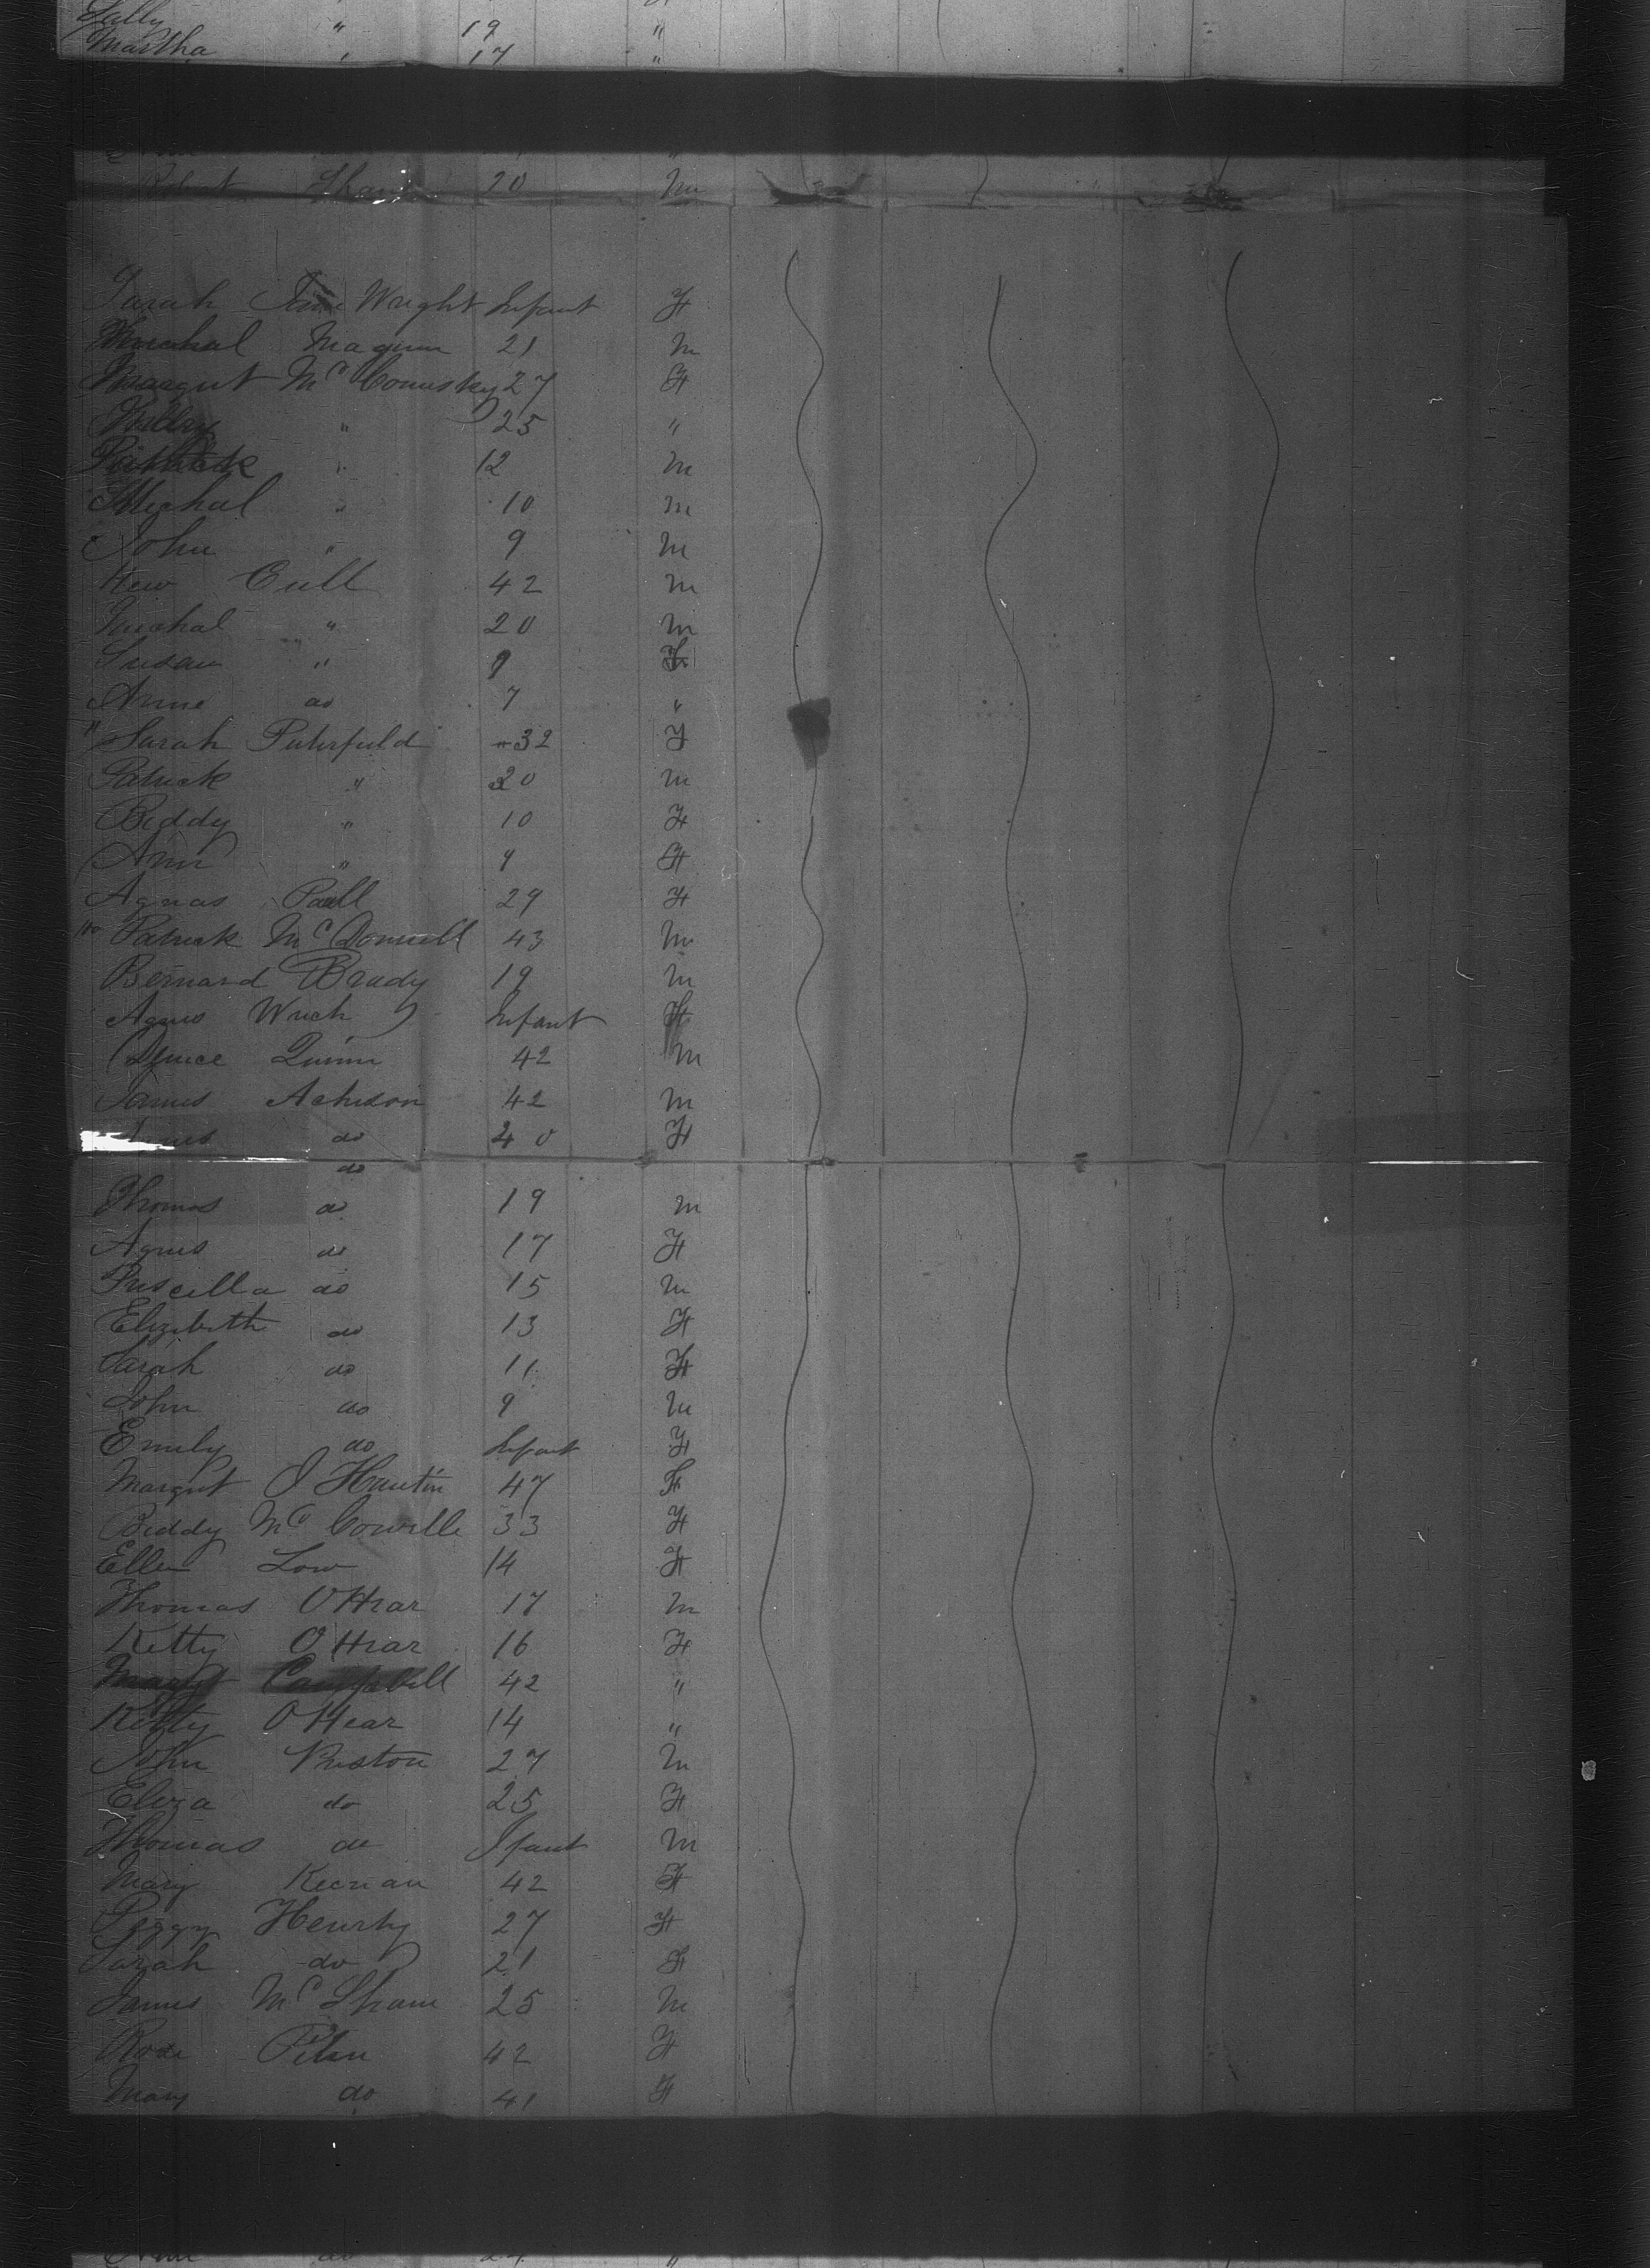 Sally " 19 "
Martha " 17 "
Robert 20 m
Sarah Jane Wright Infant F
Michal Maguin 21 m
Margut Mc Comisky 27 F
" 25 "
Patrick " 12 m
Michal " 10 m
John " 9 m
Hew Cull 42 m
Michal " 20 m
Susan " 9 F
Anne do 7 "
" Sarah Puterfuld 32 F
Patrick " 20 m
Biddy " 10 F
Ann " 9 F
Agnas Paull 29 F
Patrick Mc Donnell 43 m
Bernard Brady 19 m
Agnes Infant F
Quinn 42 m
James Acheson 42 m
do 40 F
do
Thomas do 19 m
Agnes do 17 F
Priscilla do 15 m
Elizibith do 13 F
Sarah do 11 F
John do 9 m
Emily do Infant F
Margut 47 F
Biddy Mc Conville 33 F
Ellen Low 14 F
Thomas OHear 17 m
Kitty OHear 16 F
Margt Campbell 42 "
Kitty OHear 14 "
John Preston 27 m
Eliza do 25 F
Thomas do Ifant m
Mary Keenan 42 F
Peggy Heurty 27 F
Sarah do 21 F
James Mc Shane 25 m
Rose 42 F
Mary do 41 F
do